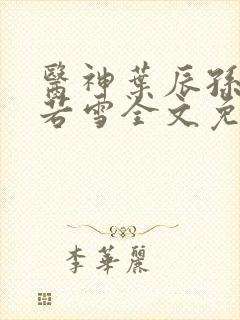 醫神葉辰孫
若雪全文免
李華麗